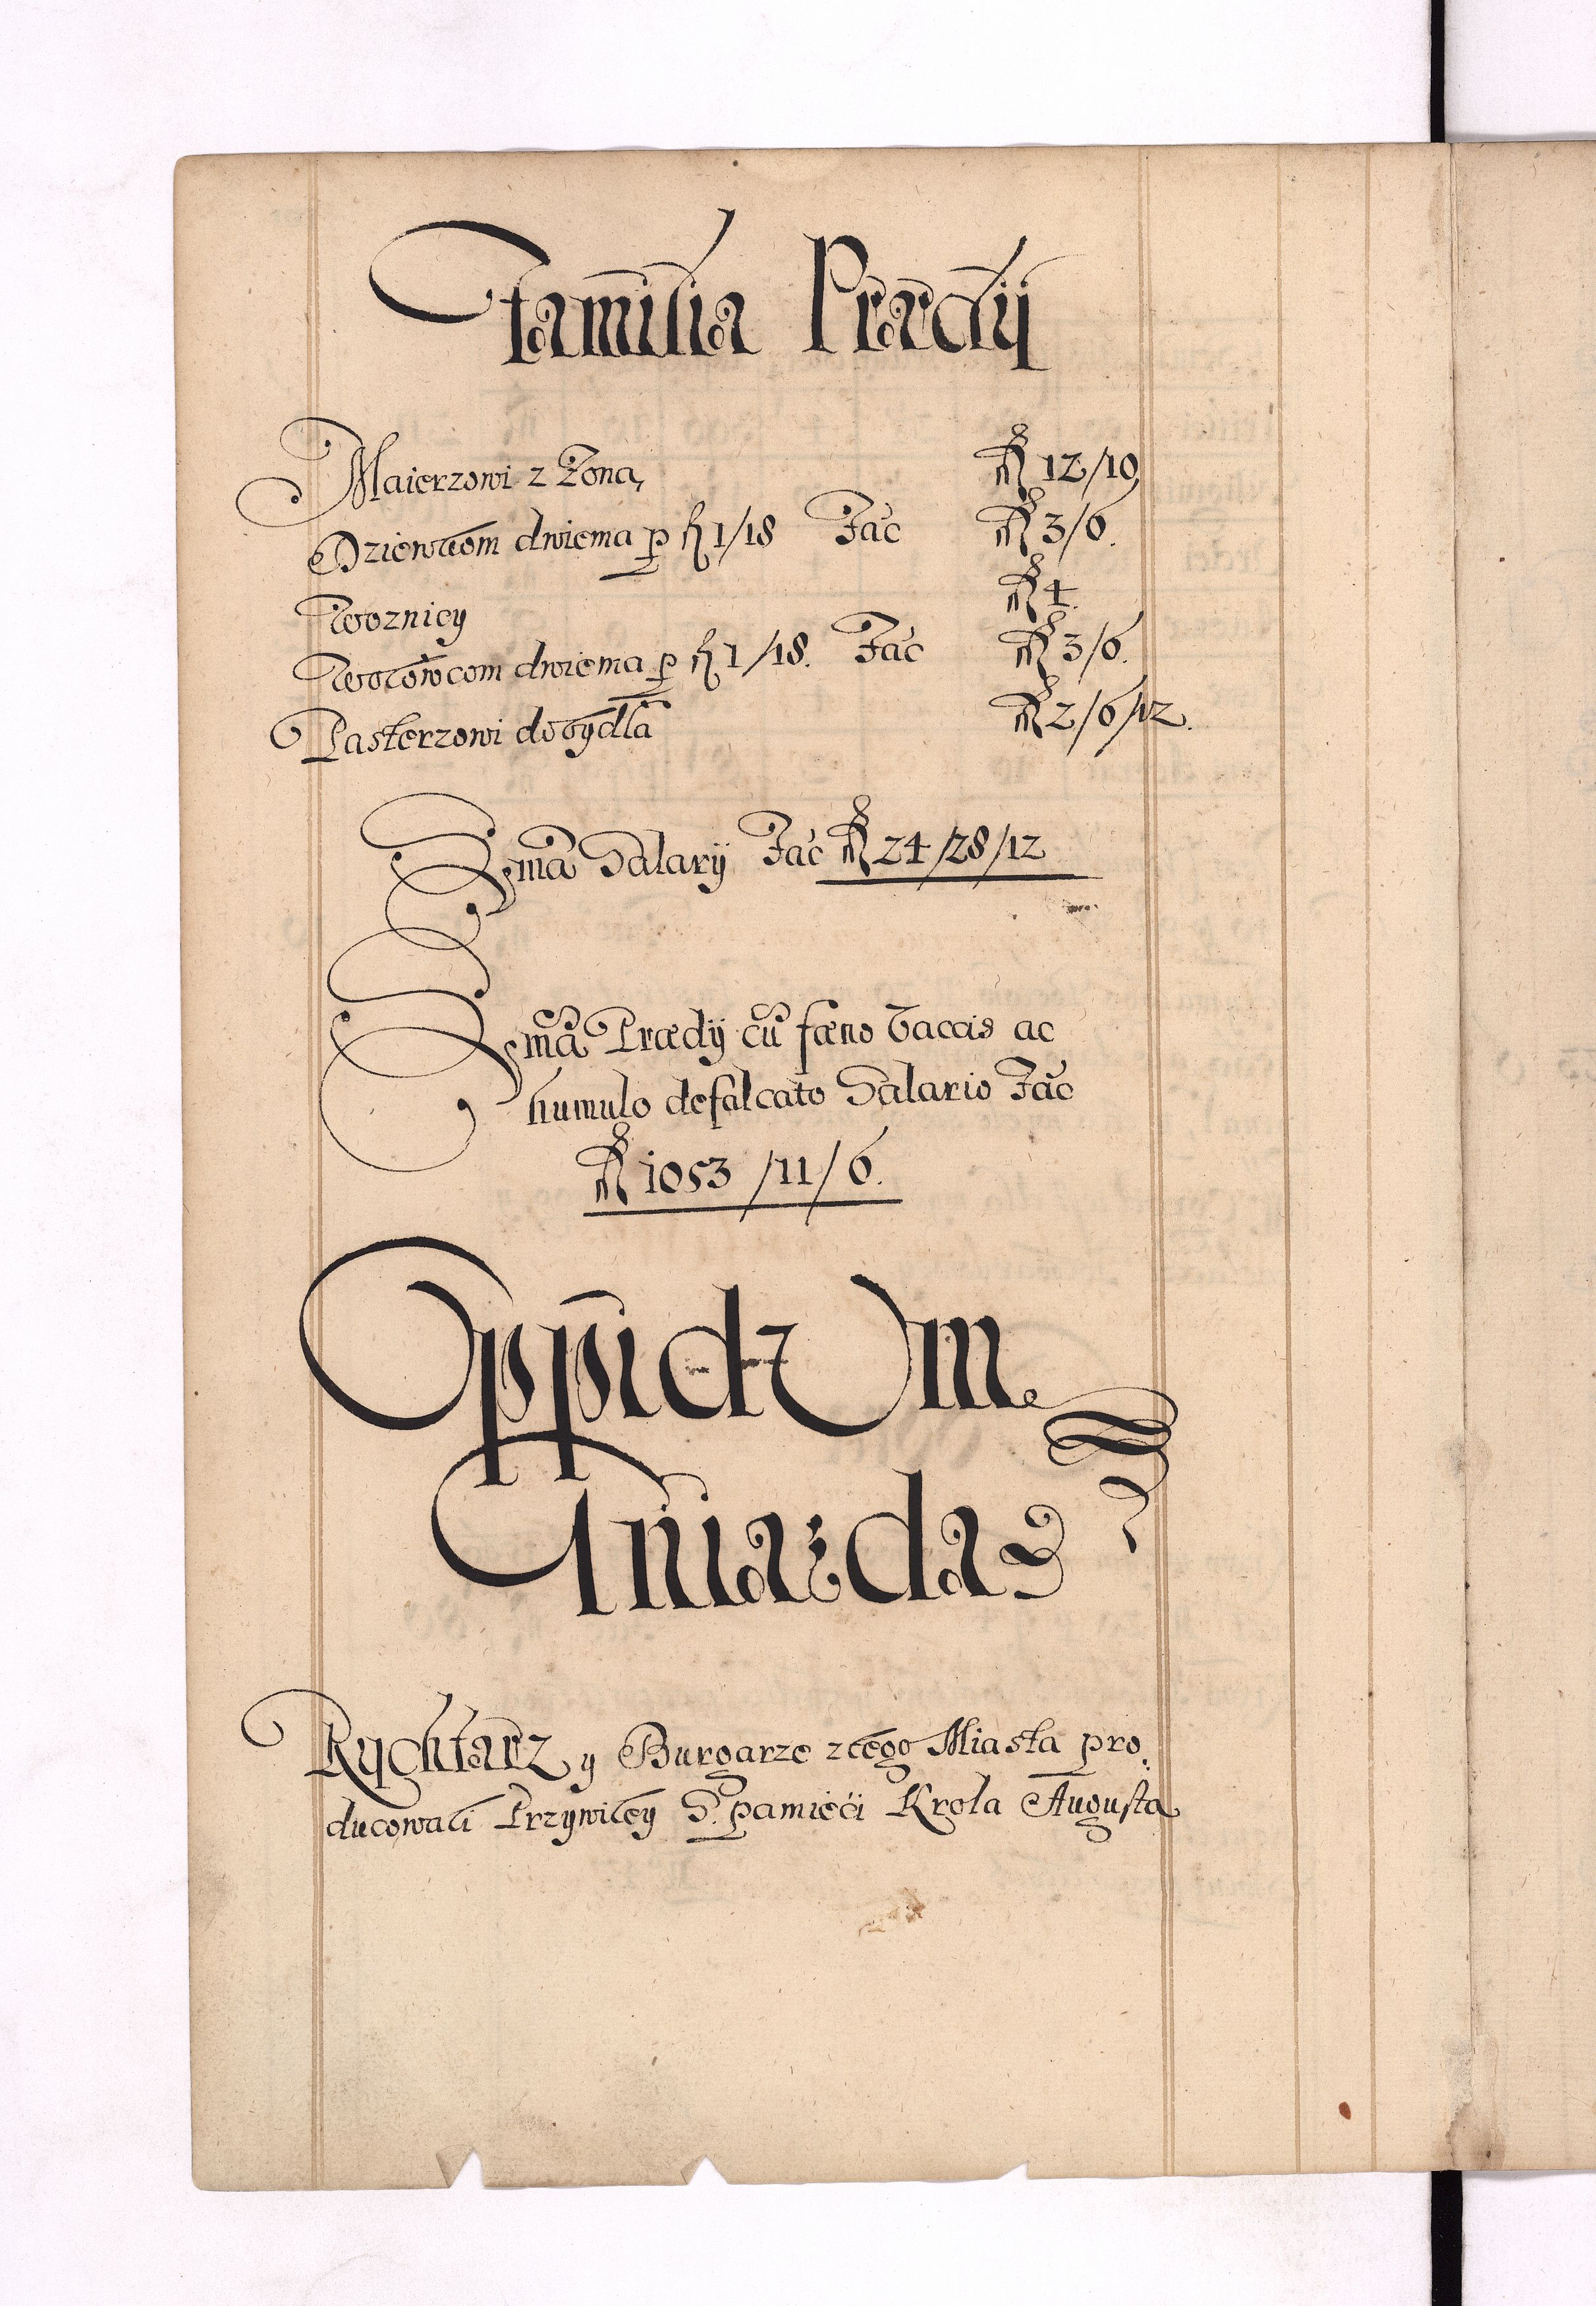 Familia Prædij
Maierzowi z Żoną fl 12/10
Dziewkom dwiema p fl 1/18 Fac̃ fl 3/6.
Woznicy fl 4.
Wołowcom dwiema p fl 1/18. Fac̃ fl 3/6.
Pasterzowi do bydła fl 2/6/12.
Sum̃a Salarij Fac̃ fl 24/28/12
Sum̃a Prædij cũ fæno Vaccis ac
humulo defalcato Salario Fac̃
fl 1053/11/6.
Oppidum
Gniazda
Rychtarz y Burgarze z tego Miasta pro:
ducowali Przywiley S. pamięći Krola Augusta